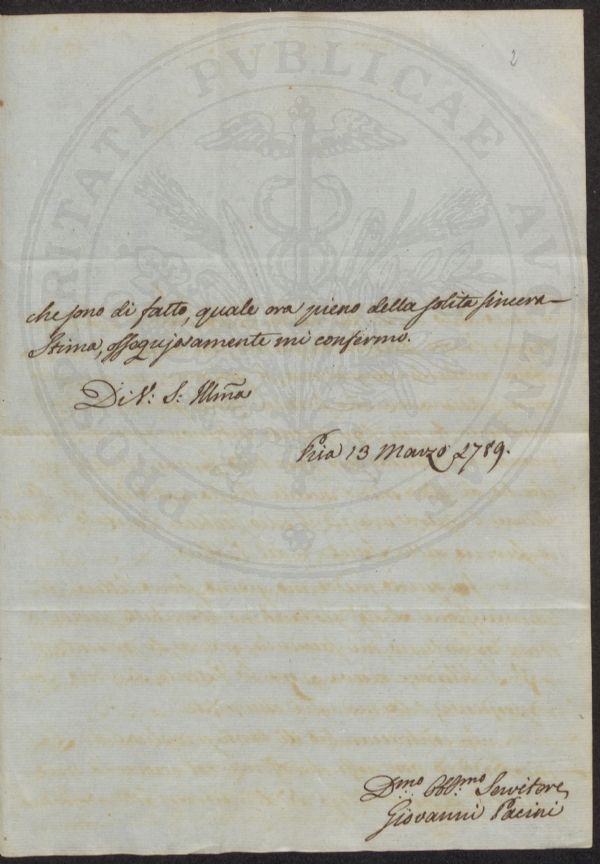 2
PROSPERITATI PVBLICAE AVGENDAE
che sono di fatto, quale ora pieno della solita sincera
stima, ossequiosamente mi confermo.
Di V: S: Illm̃a
13 Marzo 1789.
Dmo Obbmo Servitore
Giovanni Pacini